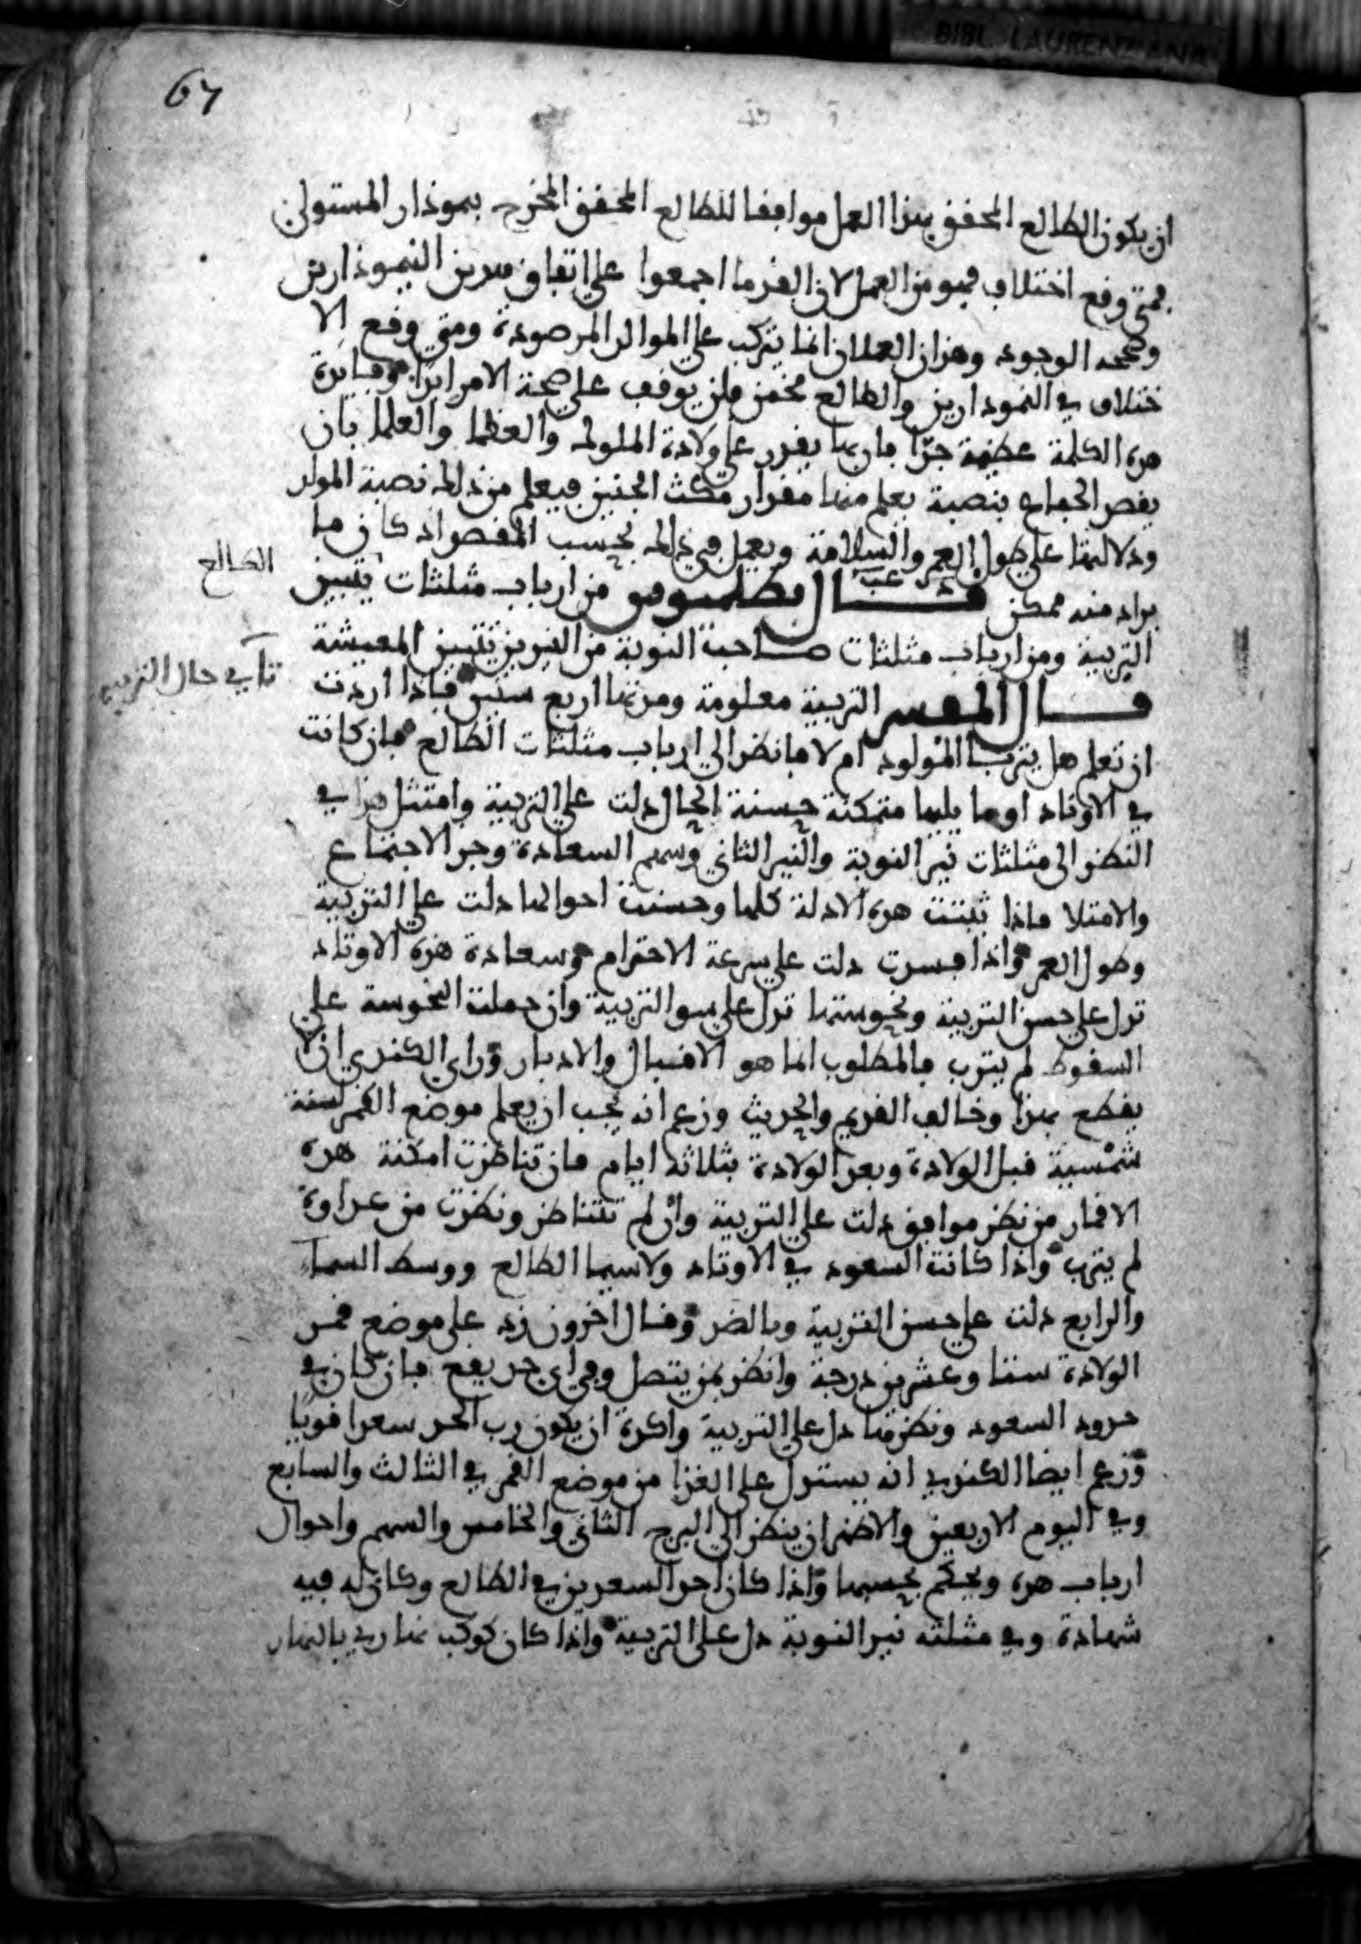 BIBL. LAURENZIANA
67
ان يكون الطالع المحقق بهذا العمل موافقا للطالع المحقق المخرج بنموذار المستولى
فمتى وقع اختلاف فهو من العمل لان القدما اجمعوا على اتفاق هذين النموذارين
وصححه الوجود وهذان العملان انما يتركب على الموالد المرصودة ومتى وقع الا
ختلاف في النموذارين والطالع مخمن فلن يوقف على صحة الامر ابدا وفايدة
هذه الكلمة عظيمة جدا فان بها يقدر على ولادة الملوك والعظما والعلما بان
يقصد الجماع بنصبة يعلم منها مقدار مكث الجنين فيعلم من ذلك نصبة المولد
ودلالتها على طول العمر والسلامة ويعمل في ذلك بحسب المقصد اذ كان ما
يراد منه ممكن قال بطلميوس من ارباب مثلثات يتبين
الطالع
التربية ومن ارباب مثلثات صاحبة النوبة من النيرين يتبين المعيشة
في حال التربية
قال المفسر التربية معلومة ومدتها اربع سنين فاذا اردت
ان تعلم هل يتربى المولود ام لا فانظر الى ارباب مثلثات الطالع فان كانت
في الاوتاد او ما يليها متمكنة حسنة الحال دلت على التربية وامتثل هذا في
النظر الى مثلثات نير النوبة والنير الثاني وسهم السعادة وجز الاجتماع
والامتلا فاذا ثبتت هذه الادلة كلها وحسنت احوالها دلت على التربية
وطول العمر واذا فسدت دلت على سرعة الاخترام وسعادة هذه الاوتاد
تدل على حسن التربية ونحوستها تدل على سو التربية وان حملت النحوسة على
السقوط لم يترب فالمطلوب انما هو الاقبال والادبار وراى الكندي ان لا
يقطع بهذا وخالف القديم والحديث وزعم انه يجب ان يعلم موضع القمر لسنة
شمسية قبل الولادة وبعد الولادة بثلاثة ايام فان تناظرت امكنة هذه
الاقمار من نظر موافق دلت على التربية وان لم تتناظر ونظرت من عداوة
لم يترب واذا كانت السعود في الاوتاد ولاسيما الطالع ووسط السماء
والرابع دلت على حسن التربية وبالضد وقال اخرون زد على موضع قمر
الولادة ستا وعشرين درجة وانظر بمن يتصل وفي اي حد يقع فان كان في
حدود السعود ونظرتها دل على التربية واكره ان يكون رب الحد سعدا قويا
وزعم ايضا الكندي انه يستدل على الغذا من موضع القمر في الثالث والسابع
وفي اليوم الاربعين والاظهر ان ينظر الى البرج الثاني والخامس والسهم واحوال
ارباب هذه ويحكم بحسبها واذا كان احد السعدين في الطالع وكان له فيه
شهادة وفي مثلثه نير النوبة دل على التربية واذا كان كوكب نهاري بالنهار